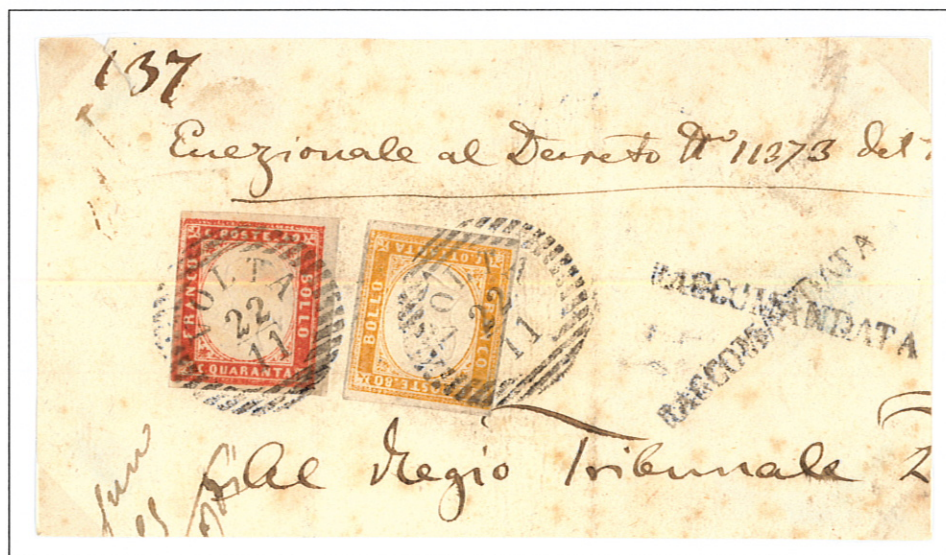 137
Enezionale al Decreto N° 11373 del
C. POSTE. 40
FRANCO
BOLLO
C QUARANTA
VOLTA
22
11
C. OTTANTA
BOLLO
FRANCO
C. POSTE. 80
VOLTA
22
11
RACCOMANDATA
RACCOMANDATA
Al Regio Tribunale